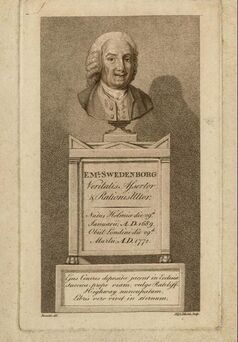 EM. SWEDENBORG
Veritatis Assertor
& Rationis Ultor.
Natus Holmiæ die 29.
Januarii, A.D. 1689.
Obiit Londini die 29.
Martii, A.D. 1772.
Ejus Cineris depositi jacent in Ecclesia
Suecica, prope viam, vulgo Ratcliff-
Highway nuncupatam.
Libris vero vivit in æternum.